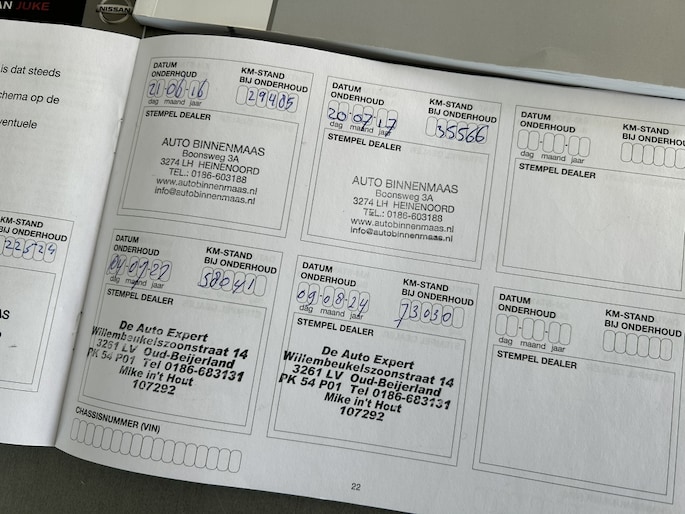 AN JUKE
NISSAN
is dat steeds
chema op de
ventuele
KM-STAND
BIJ ONDERHOUD
22524
DATUM
ONDERHOUD
KM-STAND
BIJ ONDERHOUD
21-06-16
29405
dag maand jaar
STEMPEL DEALER
AUTO BINNENMAAS
Boonsweg 3A
3274 LH HEINENOORD
TEL.: 0186-603188
www.autobinnenmaas.nl
info@autobinnenmaas.nl
DATUM
ONDERHOUD
KM-STAND
BIJ ONDERHOUD
20-07-17
35566
dag maand jaar
STEMPEL DEALER
AUTO BINNENMAAS
Boonsweg 3A
3274 LH HEINENOORD
TEL.: 0186-603188
www.autobinnenmaas.nl
info@autobinnenmaas.nl
DATUM
ONDERHOUD
KM-STAND
BIJ ONDERHOUD
dag maand jaar
STEMPEL DEALER
DATUM
ONDERHOUD
KM-STAND
BIJ ONDERHOUD
58041
dag maand jaar
STEMPEL DEALER
De Auto Expert
Willembeukelszoonstraat 14
3261 LV Oud-Beijerland
PK 54 P01 Tel 0186-683131
Mike in't Hout
107292
DATUM
ONDERHOUD
KM-STAND
BIJ ONDERHOUD
09-08-24
73030
dag maand jaar
STEMPEL DEALER
De Auto Expert
Willembeukelszoonstraat 14
3261 LV Oud-Beijerland
PK 54 P01 Tel 0186-683131
Mike in't Hout
107292
DATUM
ONDERHOUD
KM-STAND
BIJ ONDERHOUD
dag maand jaar
STEMPEL DEALER
CHASSISNUMMER (VIN)
22